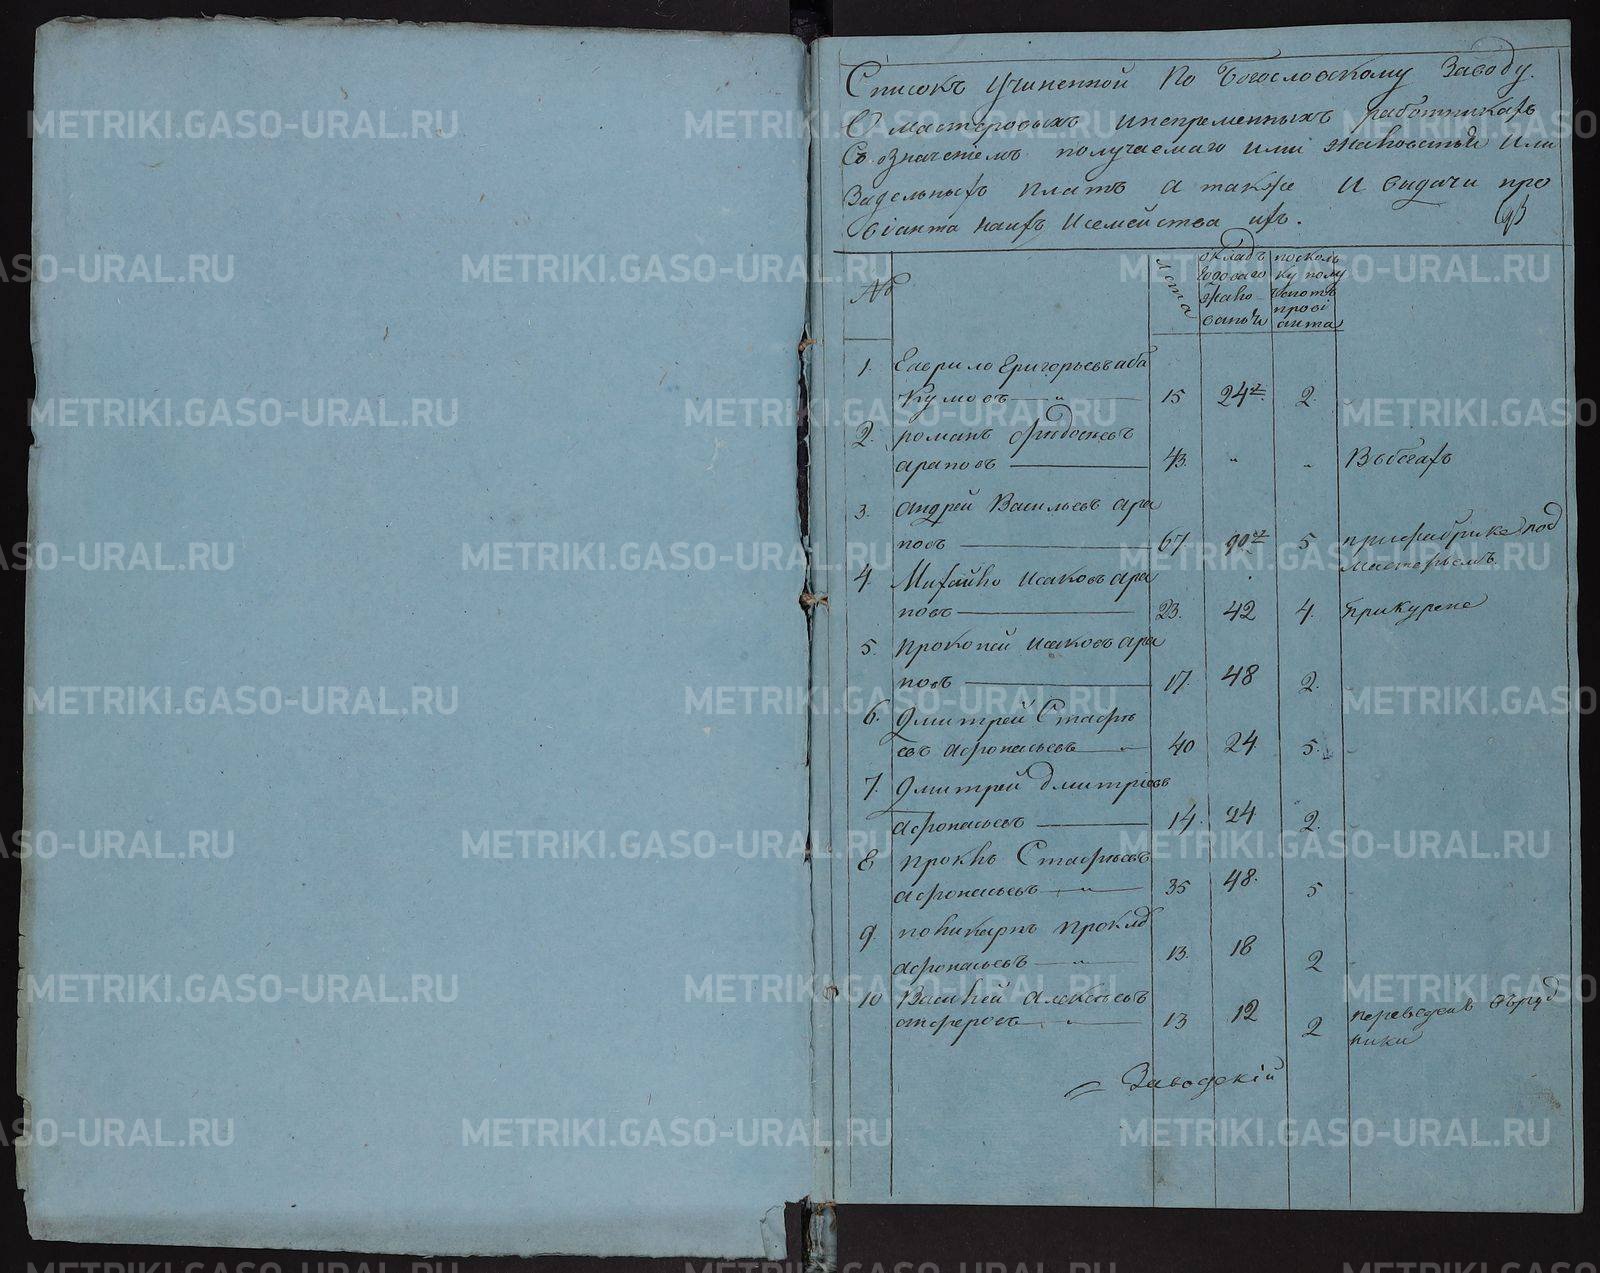 Списокъ Учиненной По Богословскому Заводу.
О мастеровыхъ инепременныхъ работникахъ
Съ означенiемъ получаемаго ими жалованья или
Задельныхъ платъ а также и выдачи про
вiанта наихъ Исемейства ихъ.
№
Лета
окладъ годоваго жалованья
посколь ку кому
провiанта
1. Гаврило Григорьевъ аба
кумовъ 15 24 2.
2. романъ
араповъ 43. " " Въбегахъ
3. андрей Васильевъ ара
повъ 67 90 5 прифабрике под
мастерьемъ
4. Михайло исаковъ ара
повъ 23. 42 4. Прикурене
5. Прокопей исаковъ ара
повъ 17. 48 2.
6. Дмитрей Стафѣ
евъ афонасьевъ 40 24 5.
7. Дмитрей дмитрiевъ
афонасьевъ 14. 24 2.
8 Проклъ Стафѣевъ
афонасьевъ 35 48. 5
9. поликарпъ Прокл
афонасьевъ 13. 18 2
10 Василей Алексѣевъ
13 12 2 переведенъ въруд
ники
Заводскiй
METRIKI.GASO-URAL.RU